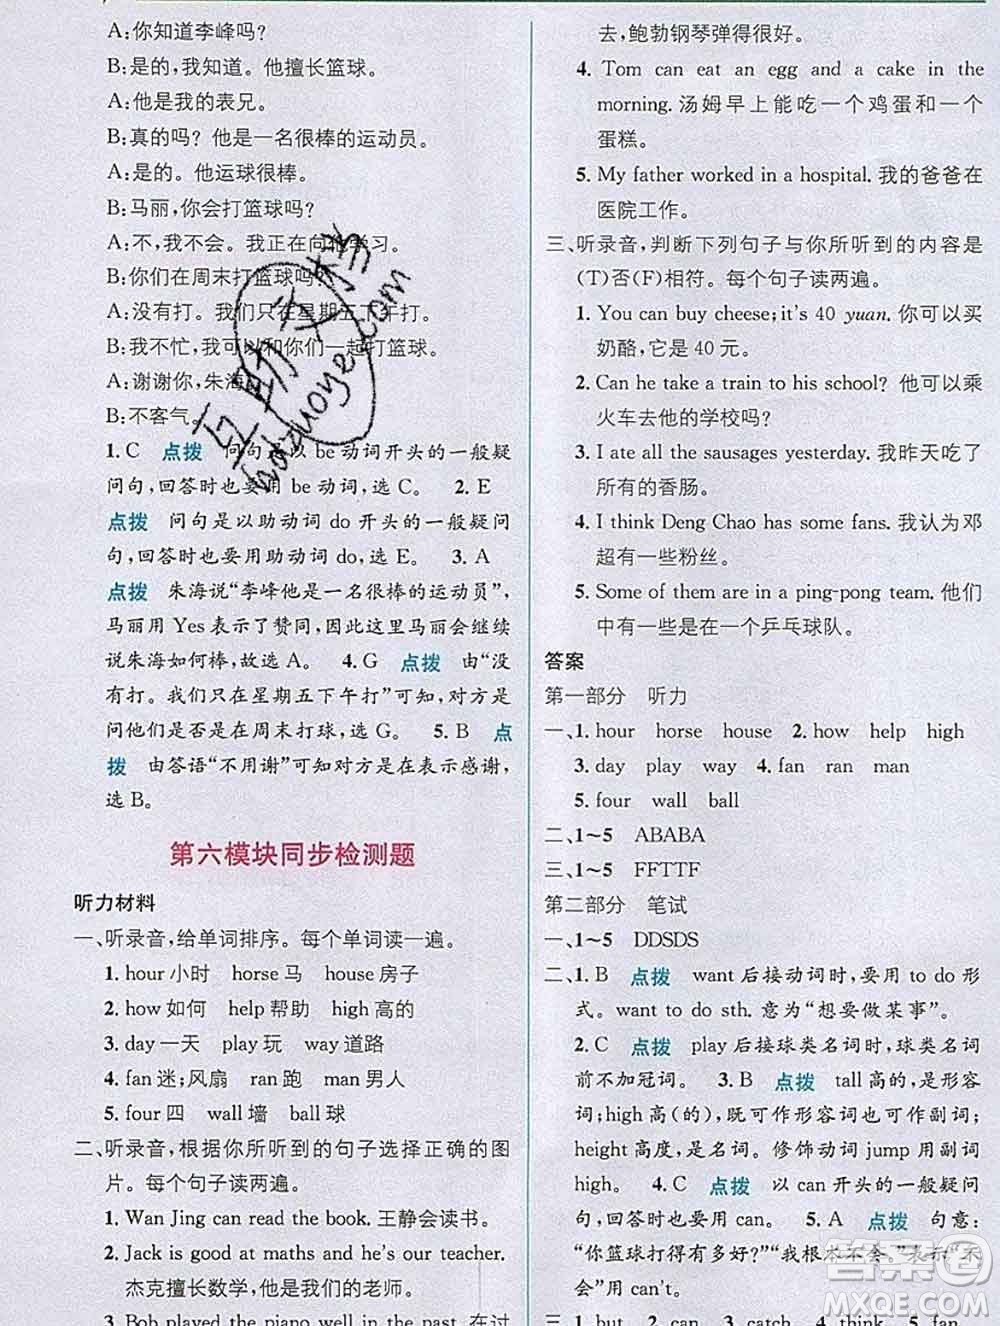 A:你知道李峰吗?
B:是的,我知道。他擅长篮球。
A:他是我的表兄。
B:真的吗? 他是一名很棒的运动员。
A:是的。他运球很棒。
B:马丽,你会打篮球吗?
A:不,我不会。我正在向他学习。
B:你们在周末打篮球吗?
A:没有打。我们只在星期五下午打。
B:我不忙,我可以和你们一起打篮球。
A:谢谢你,朱海
B:不客气。
1. C 点拨 问句是以 be 动词开头的一般疑
问句,回答时也要用 be 动词,选 C。 2. E
点拨 问句是以助动词 do 开头的一般疑问
句,回答时也要用助动词 do,选 E。 3. A
点拨 朱海说“李峰他是一名很棒的运动员”,
马丽用 Yes 表示了赞同,因此这里马丽会继续
说朱海如何棒,故选 A。 4. G 点拨 由“没
有打。我们只在星期五下午打”可知,对方是
问他们是否是在周末打球,选 G。 5. B 点
拨 由答语“不用谢”可知对方是在表示感谢,
选 B。
第六模块同步检测题
听力材料
一、听录音,给单词排序。每个单词读一遍。
1. hour 小时 horse 马 house 房子
2. how 如何 help 帮助 high 高的
3. day 一天 play 玩 way 道路
4. fan 迷;风扇 ran 跑 man 男人
5. four 四 wall 墙 ball 球
二、听录音,根据你所听到的句子选择正确的图
片。每个句子读两遍。
1. Wan Jing can read the book. 王静会读书。
2. Jack is good at maths and he's our teacher.
杰克擅长数学,他是我们的老师。
3. Bob played the piano well in the past. 在过
去,鲍勃钢琴弹得很好。
4. Tom can eat an egg and a cake in the
morning. 汤姆早上能吃一个鸡蛋和一个
蛋糕。
5. My father worked in a hospital. 我的爸爸在
医院工作。
三、听录音,判断下列句子与你所听到的内容是
(T)否(F)相符。每个句子读两遍。
1. You can buy cheese; it's 40 yuan. 你可以买
奶酪,它是 40 元。
2. Can he take a train to his school? 他可以乘
火车去他的学校吗?
3. I ate all the sausages yesterday. 我昨天吃了
所有的香肠。
4. I think Deng Chao has some fans. 我认为邓
超有一些粉丝。
5. Some of them are in a ping-pong team. 他们
中有一些是在一个乒乓球队。
答案
第一部分 听力
一、1. hour horse house 2. how help high
3. day play way 4. fan ran man
5. four wall ball
二、1~5 ABABA
三、1~5 FFTTF
第二部分 笔试
一、1~5 DDSDS
二、1. B 点拨 want 后接动词时,要用 to do 形
式。want to do sth. 意为“想要做某事”。
2. C 点拨 play 后接球类名词时,球类名词
前不加冠词。 3. B 点拨 tall 高的,是形容
词;high 高的(地),既可作形容词也可作副词;
height 高度,是名词。修饰动词 jump 用副词
high。 4. C 点拨 以 can 开头的一般疑问
句,回答时也要用 can。 5. A 点拨 句意:
“你篮球打得有多好?”“我根本不会。”表示“不
会”用 can't.
三、1. but 2. can 3. catch 4. think 5. fan
互助文档
hdzuoye.com
答案
MXQE.COM